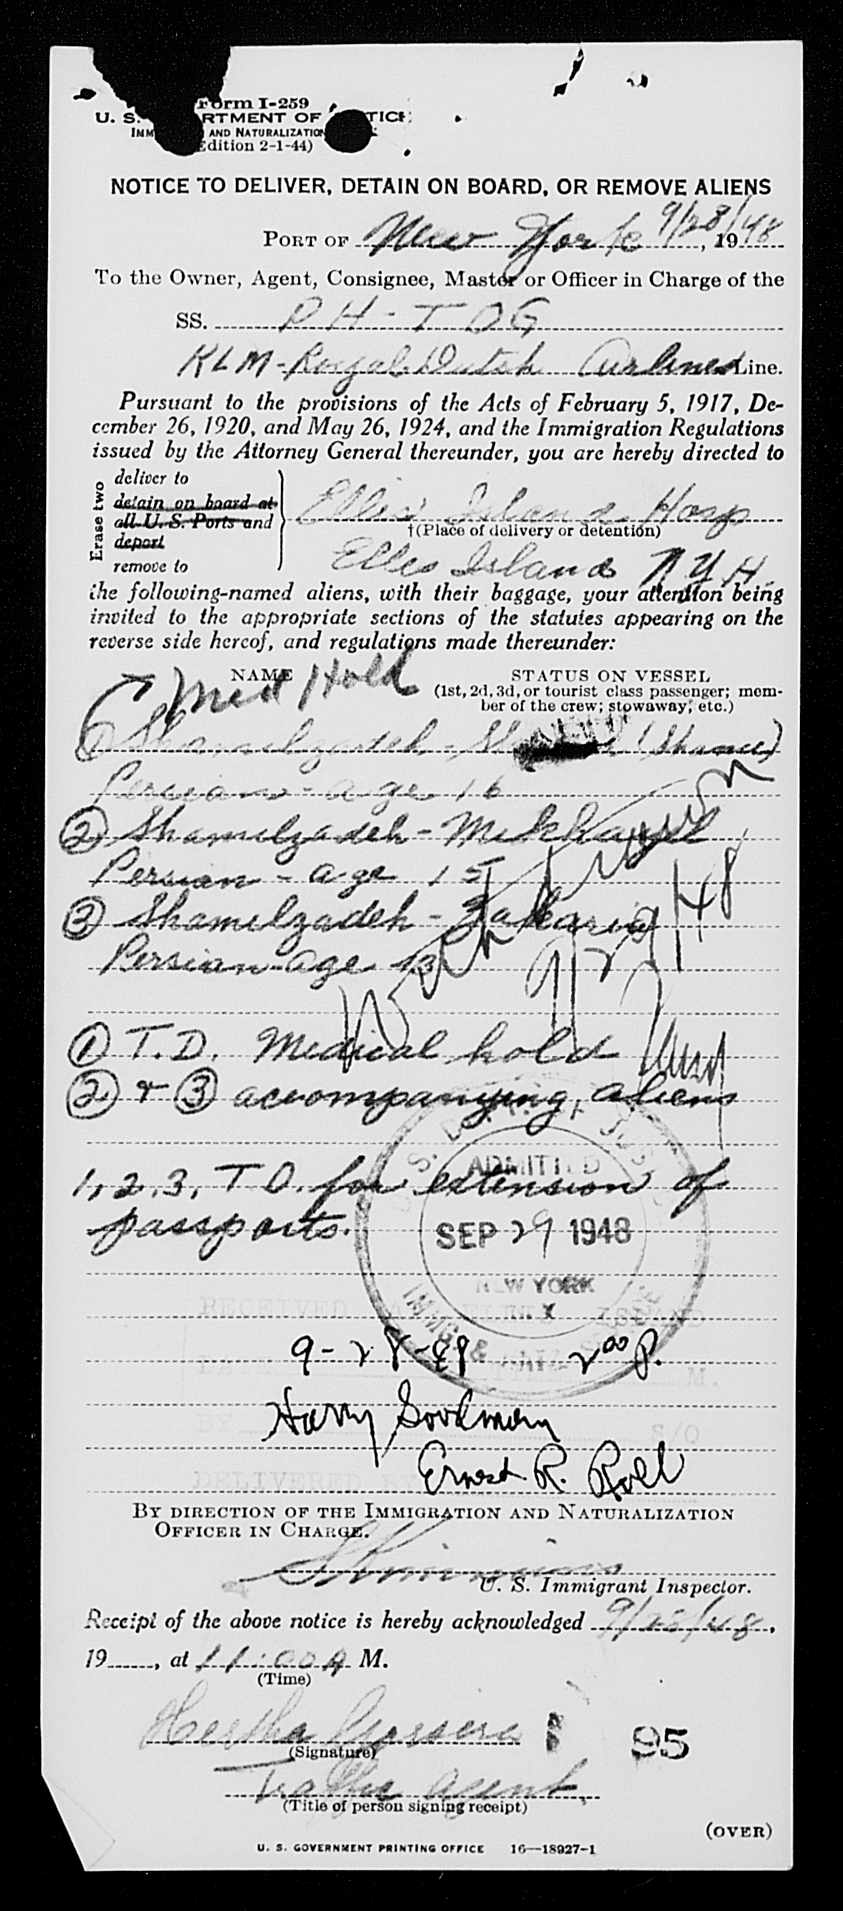 Form I-259
U. S. DEPARTMENT OF JUSTICE
IMM AND NATURALIZATION
Edition 2-1-44)
NOTICE TO DELIVER, DETAIN ON BOARD, OR REMOVE ALIENS
PORT OF New York 9/28/, 1948
To the Owner, Agent, Consignee, Master or Officer in Charge of the
SS. PH-TOG
KLM-Royal Dutch Airlines Line.
Pursuant to the provisions of the Acts of February 5, 1917, De-
cember 26, 1920, and May 26, 1924, and the Immigration Regulations
issued by the Attorney General thereunder, you are hereby directed to
Erase two
deliver to
detain on board at
all U.S. Ports and
deport
remove to
Ellis Island Hosp
†(Place of delivery or detention)
Ellis Island N.Y.H.
the following-named aliens, with their baggage, your attention being
invited to the appropriate sections of the statutes appearing on the
reverse side hereof, and regulations made thereunder:
NAME
STATUS ON VESSEL
(1st, 2d, 3d, or tourist class passenger; mem-
ber of the crew; stowaway, etc.)
Med Hold
① Shamelzadeh -
Persian - age 16
② Shamelzadeh - Mikhayel
Persian - age 15
③ Shamelzadeh - Zakaria
Persian - age 13
9/29/48
① T.D. Medical hold
② + ③ accompanying aliens
1, 2, 3, T D. for extension of
passports.
ADMITTED
SEP 29 1948
NEW YORK
RECEIVED AT ELLIS ISLAND
M.
BY
S/O
DELIVERED BY
9-28-48 2 00 P.
Harry Goodman
Ernest R. Roll
BY DIRECTION OF THE IMMIGRATION AND NATURALIZATION
OFFICER IN CHARGE.
U. S. Immigrant Inspector.
Receipt of the above notice is hereby acknowledged 9/28/48,
19, at 11:00 A M.
(Time)
Hertha
(Signature)
95
Traffic Agent
(Title of person signing receipt)
(OVER)
U. S. GOVERNMENT PRINTING OFFICE 16—18927-1